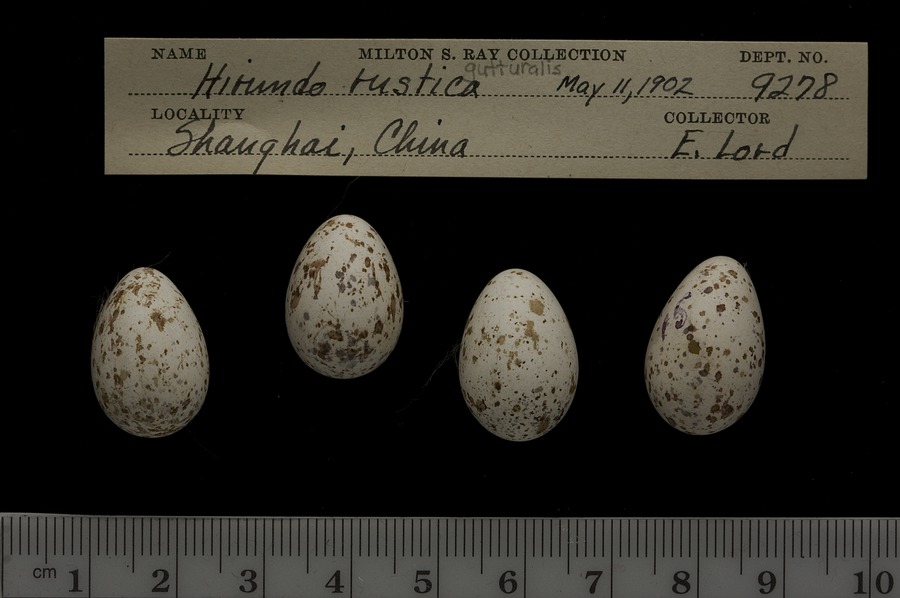 NAME MILTON S. RAY COLLECTION DEPT. NO.
gutturalis
Hirundo rustica May 11, 1902 9278
LOCALITY COLLECTOR
Shanghai, China E. Lord
cm 1 2 3 4 5 6 7 8 9 10